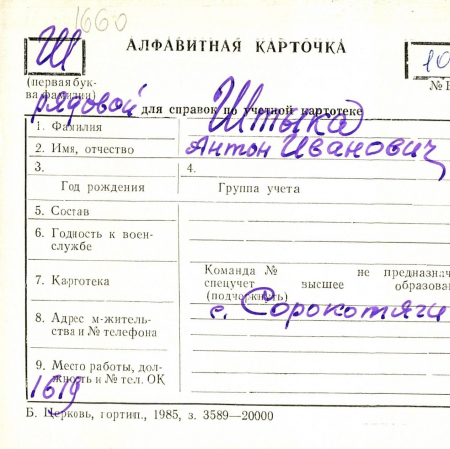 1660
Ш
АЛФАВИТНАЯ КАРТОЧКА
10
(первая бук-
ва фамилии)
№
рядовой
для справок по учетной картотеке
1. Фамилия Штыка
2. Имя, отчество Антон Иванович
3.
4.
Год рождения
Группа учета
5. Состав
6. Годность к воен-
службе
7. Картотека
Команда № не предназнач
спецучет высшее образова
(подчеркнуть)
8. Адрес м-житель-
ства и № телефона
с. Сорокотяги
9. Место работы, дол-
жность и № тел. ОК
1619
Б. Церковь, гортип., 1985, з. 3589—20000